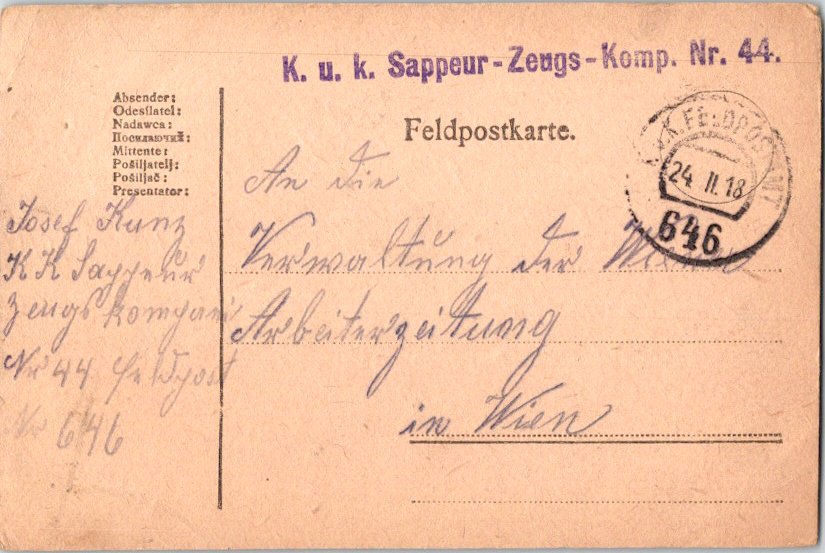 K. u. k. Sappeur-Zeugs-Komp. Nr. 44.
Absender:
Odesílatel:
Nadawca:
Посилаючий:
Mittente:
Pošiljatelj:
Pošiljač:
Presentator:
Feldpostkarte.
K.u.K. FELDPOSTAMT
24. II. 18
646
Josef Kunz
K K Sappeur
Zeugs kompani
Nr 44 Feldpost
Nr 646
An die
Verwaltung der
Arbeiterzeitung
in Wien